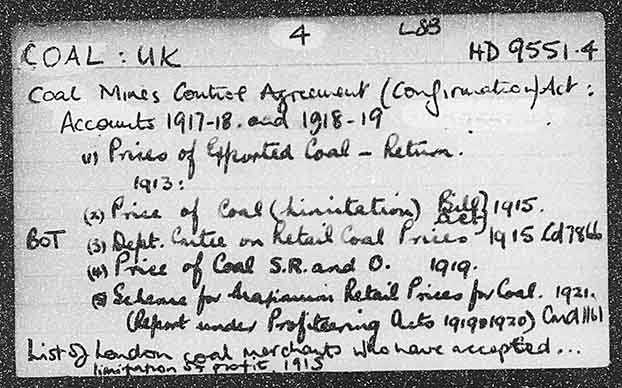 4
L83
COAL : UK
HD 9551.4
Coal Mines Control Agreement (Confirmation) Act :
Accounts 1917-18. and 1918-19
(1) Prices of Exported Coal - Return.
1913:
(2) Price of Coal (Limitation) Bill } 1915.
Act }
BOT (3) Dept. Cttee on Retail Coal Prices 1915 Cd 7866
(4) Price of Coal S.R. and O. 1919.
(5) Scheme for Retail Prices for Coal. 1921.
(Report under Profiteering Acts 1919 1920) Cmd 1161
List of London coal merchants who have accepted...
limitation of profit 1915